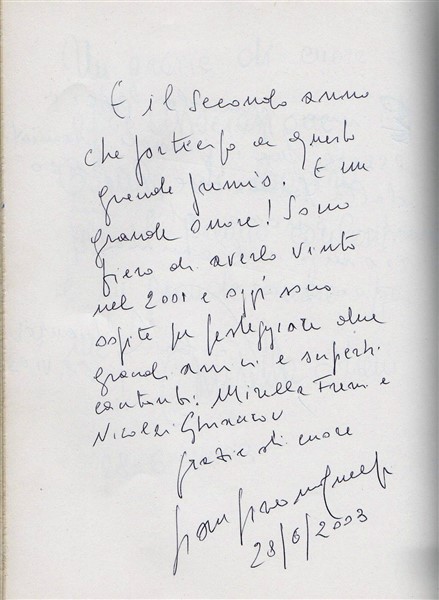 È il secondo anno
che partecipo a questo
grande premio. È un
grande onore! Sono
fiero di averlo vinto
nel 2001 e oggi sono
ospite per festeggiare due
grandi amici e superbi
cantanti: Mirella Freni e
Nicolai Ghiaurov
grazie di cuore
28/6/2003